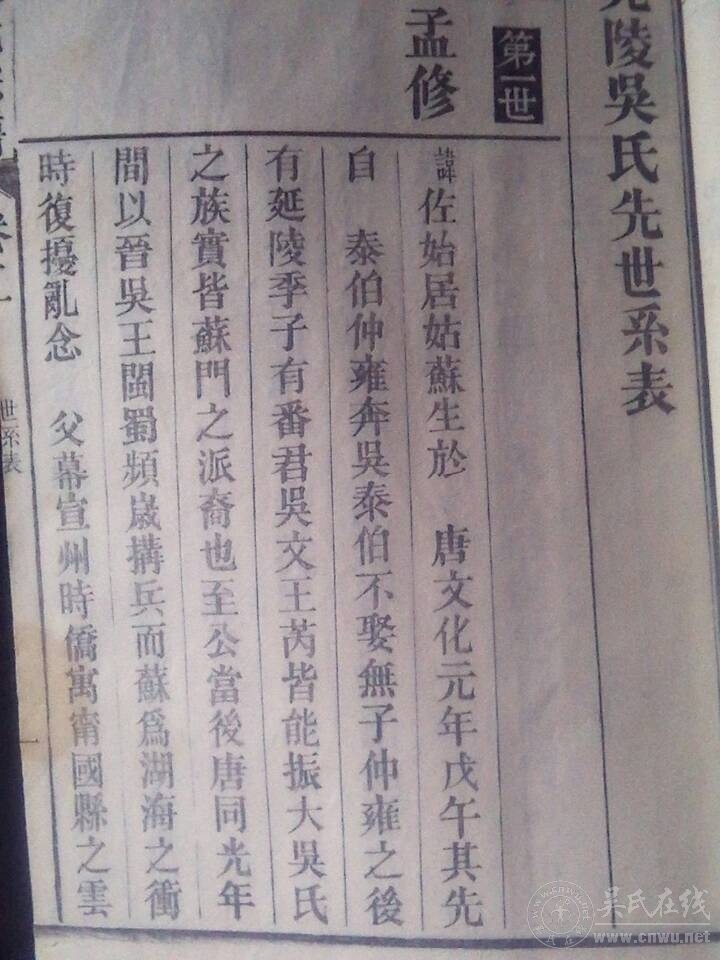 陵吳氏先世系表
第一世
孟修
諱佐始居姑蘇生於　唐文化元年戊午其先
自　泰伯仲雍奔吳泰伯不娶無子仲雍之後
有延陵季子有番君吳文王芮皆能振大吳氏
之族實皆蘇門之派裔也至公當後唐同光年
間以晉吳王閩蜀頻歲搆兵而蘇爲湖海之衝
時復擾亂念　父幕宣州時僑寓甯國縣之雲
世系表
吴氏在线
www.cnwu.net